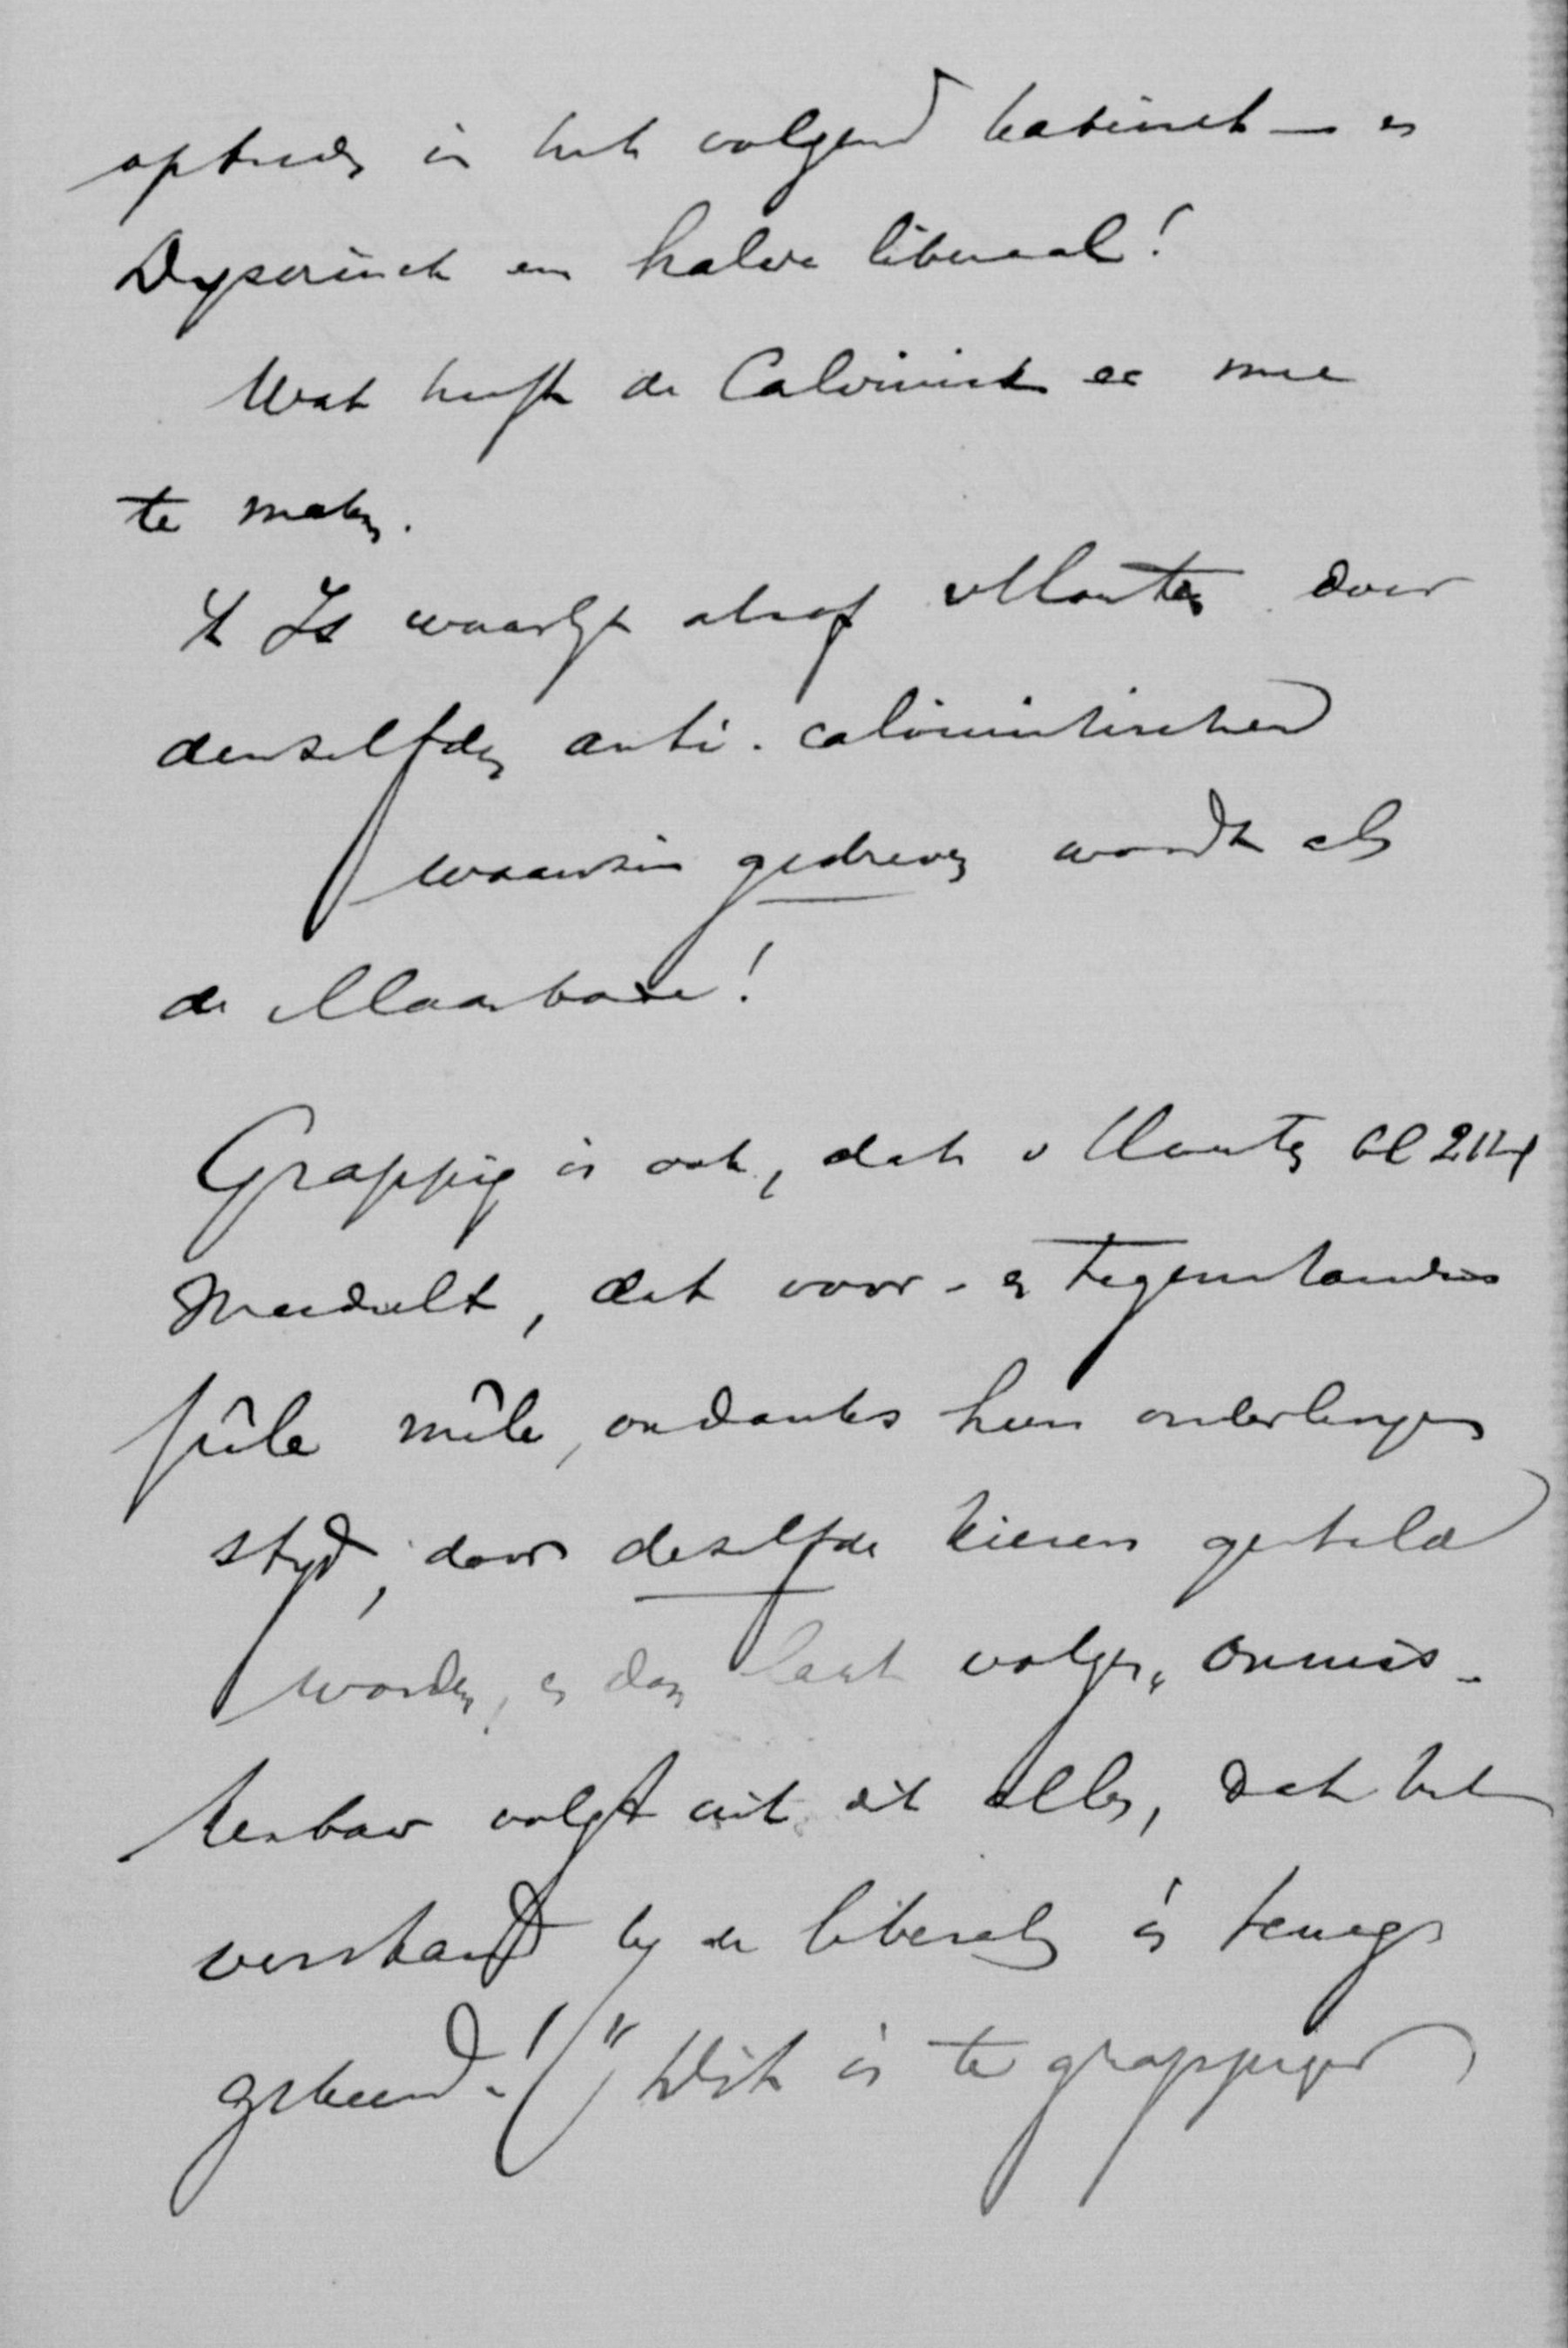 optreden in het volgend kabinet — en
Dyserinck een halve liberaal!
Wat heeft de Calvinist er mee
te maken.
't Is waarlijk alsof v Houten door
denzelfden anti-calvinistischen
waanzin gedreven wordt als
de
Grappig is ook, dat v Houten bl 214
Mededeelt, dat voor- en tegenstanders
pêle mêle, ondanks hun onderlingen
strijd, door dezelfde kiezers gesteld
worden, en dan laat volgen „Onmis-
kenbaar volgt uit dit alles, dat het
verstand bij de liberalen is terug
gekeerd.!" Dit is te grappiger